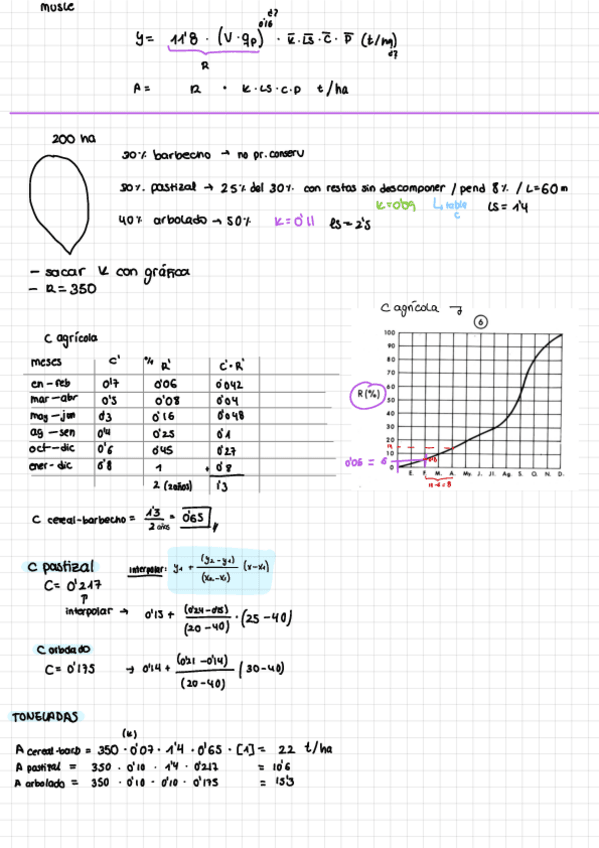 MUSLE
y = 11'8 · (V · qp)^0'16 · K̄ · L̄S̄ · C̄ · P̄ (t/m)
R
A = R · K · LS · C · P t/ha
200 ha
30% barbecho → no pr. conserv
30% pastizal → 25% del 30% con restos sin descomponer / pend 8% / L=60m
K=0'09 ↳ tabla C LS = 1'4
40% arbolado → 50% K=0'11 LS = 2'5
- sacar K con gráfica
- R = 350
C agrícola →
6
C agrícola
meses C' % R' C'·R'
en-feb 0'7 0'06 0'042
mar-abr 0'5 0'08 0'04
may-jun 0'3 0'16 0'048
ag-sen 0'4 0'25 0'1
oct-dic 0'6 0'45 0'27
ener-dic 0'8 1 0'8
2 (2años) 1'3
R(%)
100
90
80
70
60
50
40
30
20
10
0
0'06 = 6
E. F. M. A. My. J. Jl. Ag. S. O. N. D.
C cereal-barbecho = 1'3 / 2 años = 0'65
C pastizal
interpolar: y1 + (y2-y1)/(x2-x1) (x-x1)
C = 0'217
interpolar → 0'13 + (0'24-0'13)/(20-40) · (25-40)
C arbolado
C = 0'175 → 0'14 + (0'21-0'14)/(20-40) (30-40)
TONELADAS
(K)
A cereal-barb = 350 · 0'07 · 1'4 · 0'65 · [1] = 22 t/ha
A pastizal = 350 · 0'10 · 1'4 · 0'217 = 10'6
A arbolado = 350 · 0'10 · 0'10 · 0'175 = 15'3